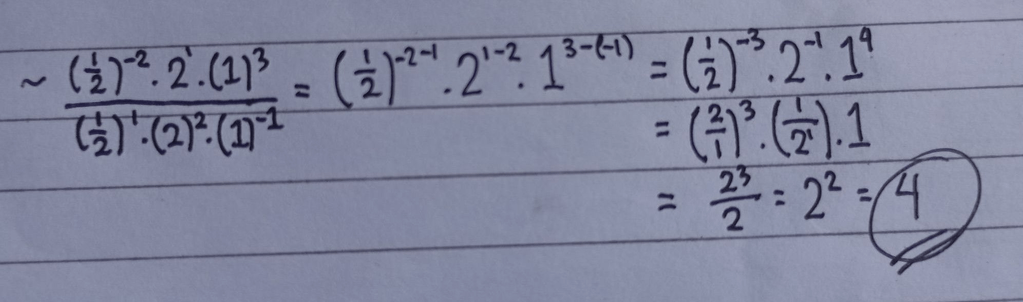 ~ (1/2)^-2 · 2^1 · (1)^3 / (1/2)^1 · (2)^2 · (1)^-1 = (1/2)^-2-1 · 2^1-2 · 1^3-(-1) = (1/2)^-3 · 2^-1 · 1^4
= (2/1)^3 · (1/2^1) · 1
= 2^3/2 = 2^2 = 4